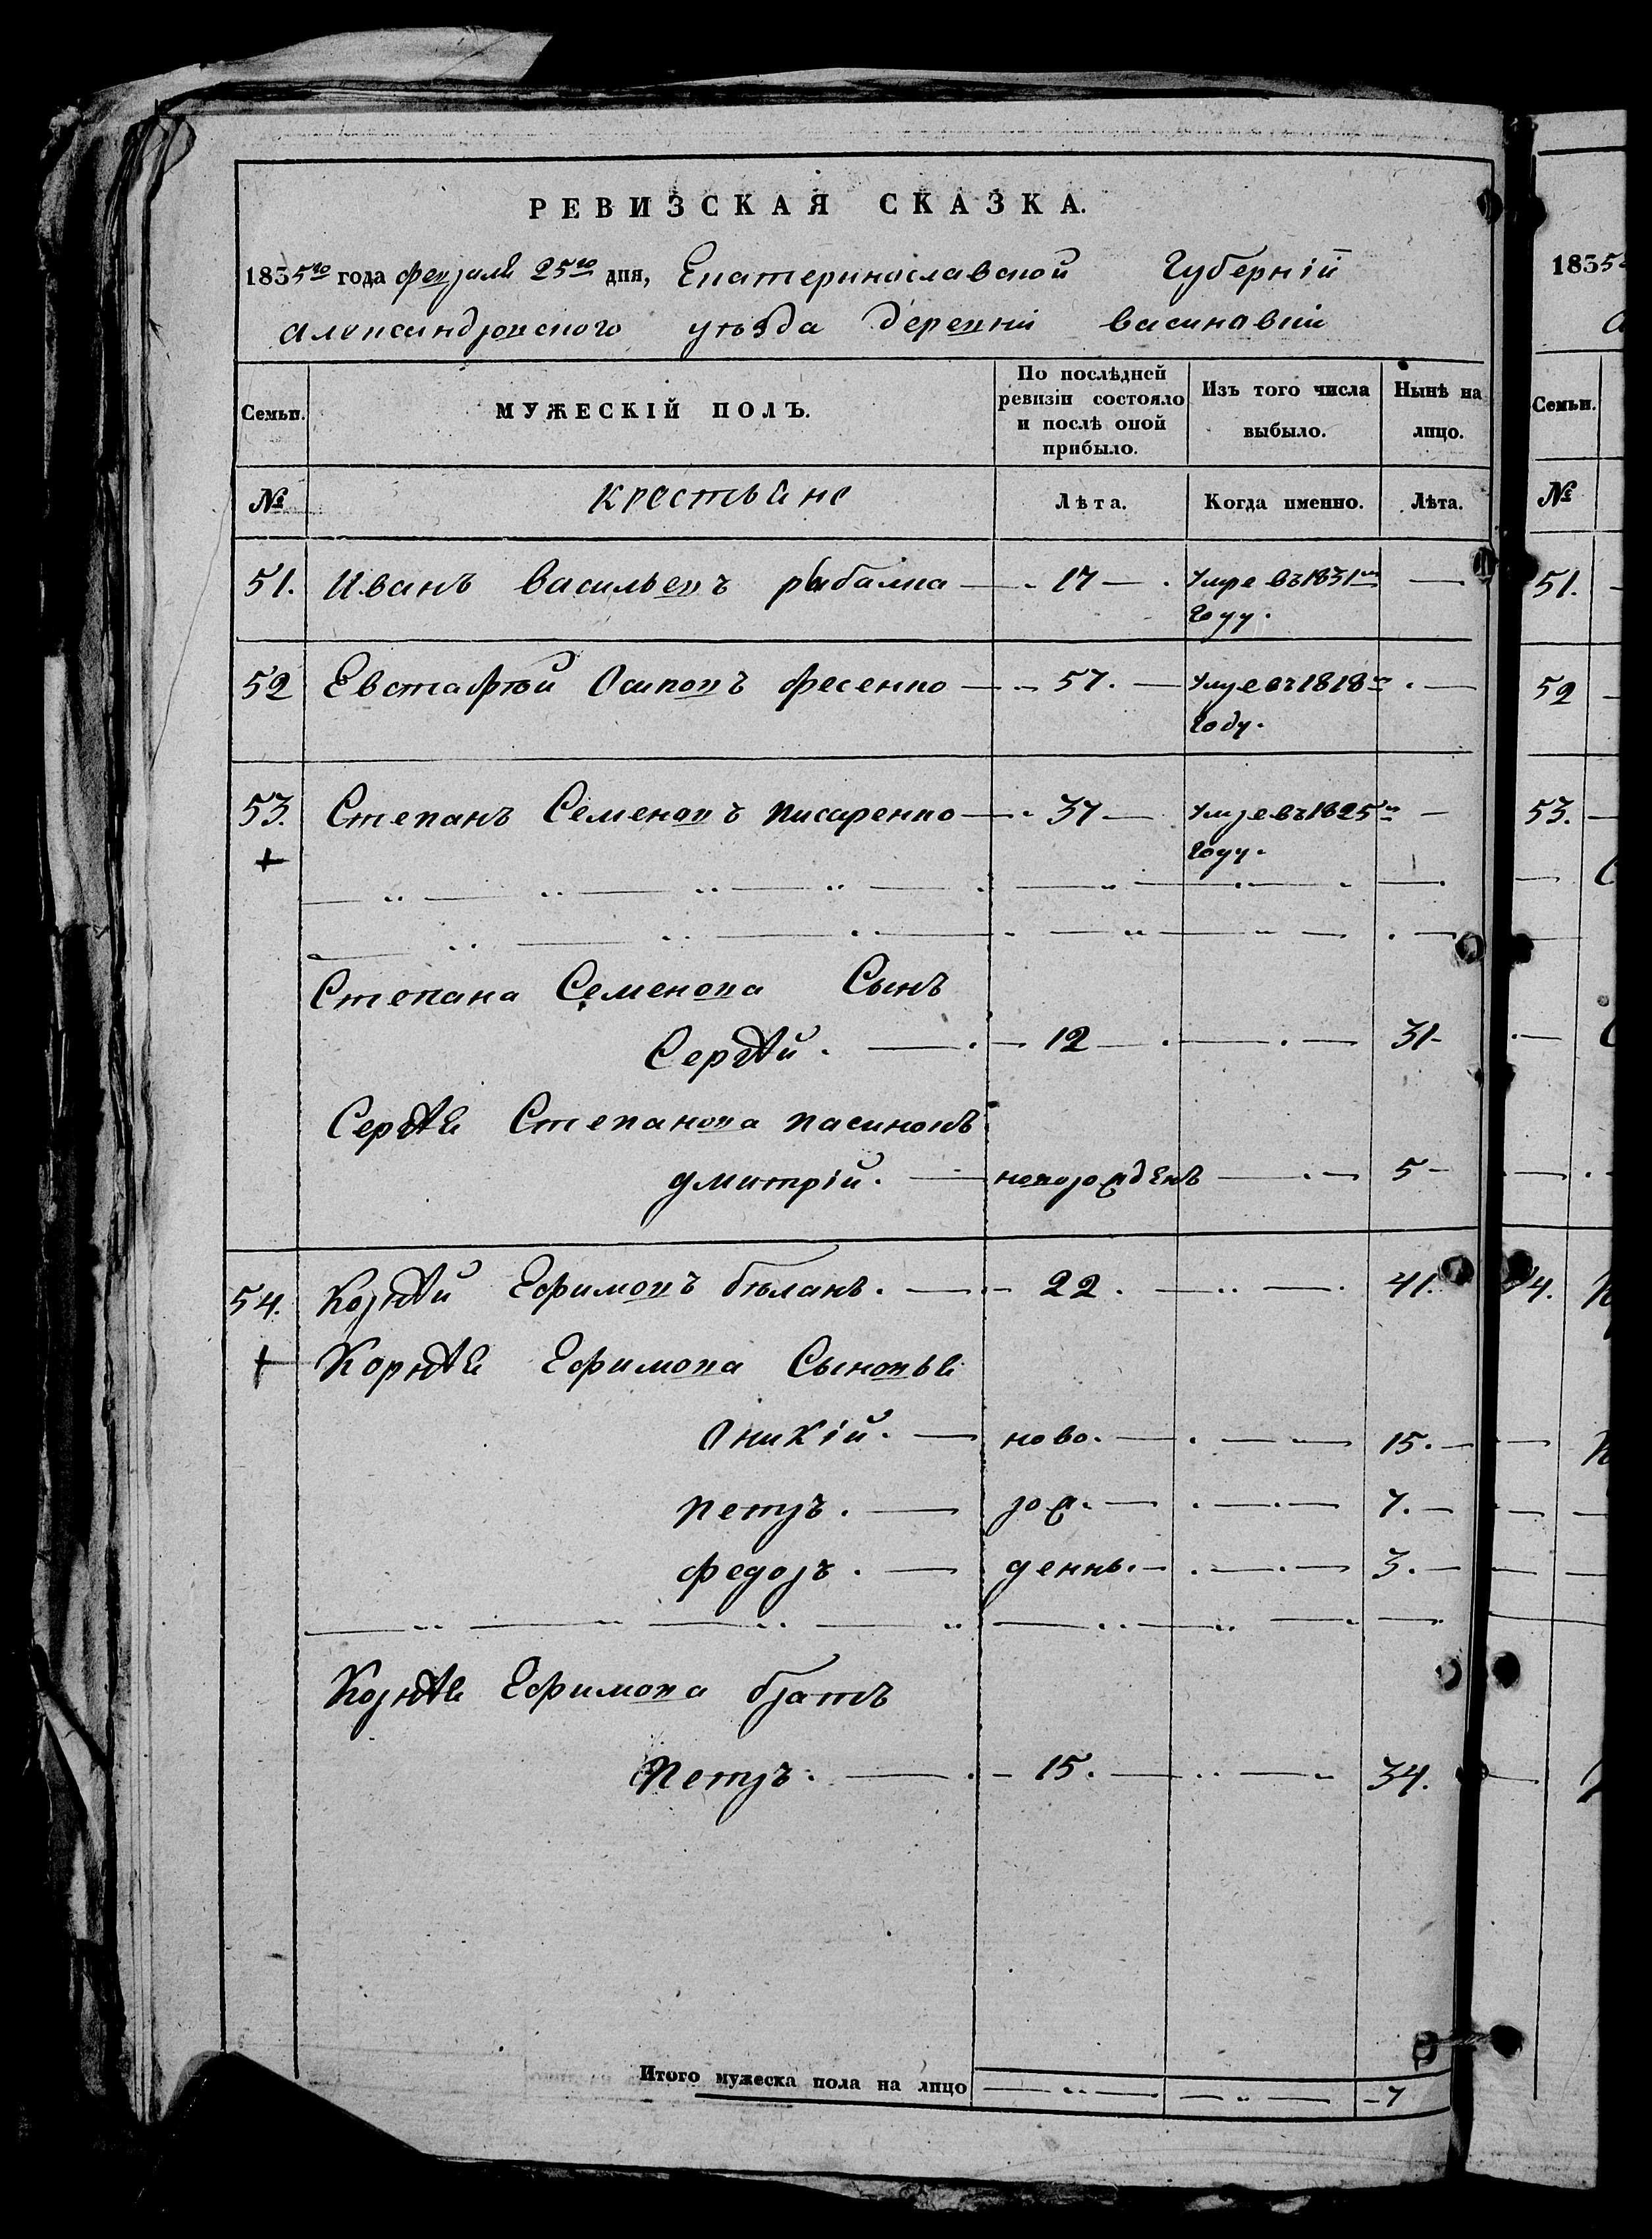 РЕВИЗСКАЯ СКАЗКА.
1835го года февраля 25го дня, Екатеринославской Губерніи
Александровского уѣзда деревни васинавки
Семьи. МУЖЕСКІЙ ПОЛЪ. По послѣдней ревизіи состояло и послѣ оной прибыло. Изъ того числа выбыло. Нынѣ на лицо.
№ крестьяне Лѣта. Когда именно. Лѣта.
51. Иванъ васильевъ рыбалка — 17 — Умре въ 1831м —
году.
52 Евстафѣй Осиповъ фесенко — 57. — Умре въ 1818м —
Году.
53. Степанъ Семеновъ писаренко — 37 — Умре въ 1825м —
году.
+
Степана Семенова Сынъ
Сергѣй. — 12 — 31
Сергѣя Степанова пасинокъ
дмитрій. — новорожденъ — 5
54. Корнѣй Ефимовъ бѣланъ. — 22. — 41.
+ Корнѣя Ефимова Сыновья
Оникій. — ново. — 15.
петръ. — рож. — 7.
федоръ. — деннь. — 3.
Корнѣя Ефимова братъ
Петръ. — 15. — 34.
Итого мужеска пола на лицо — 7
1835
Семьи.
№
51.
52
53.
54.